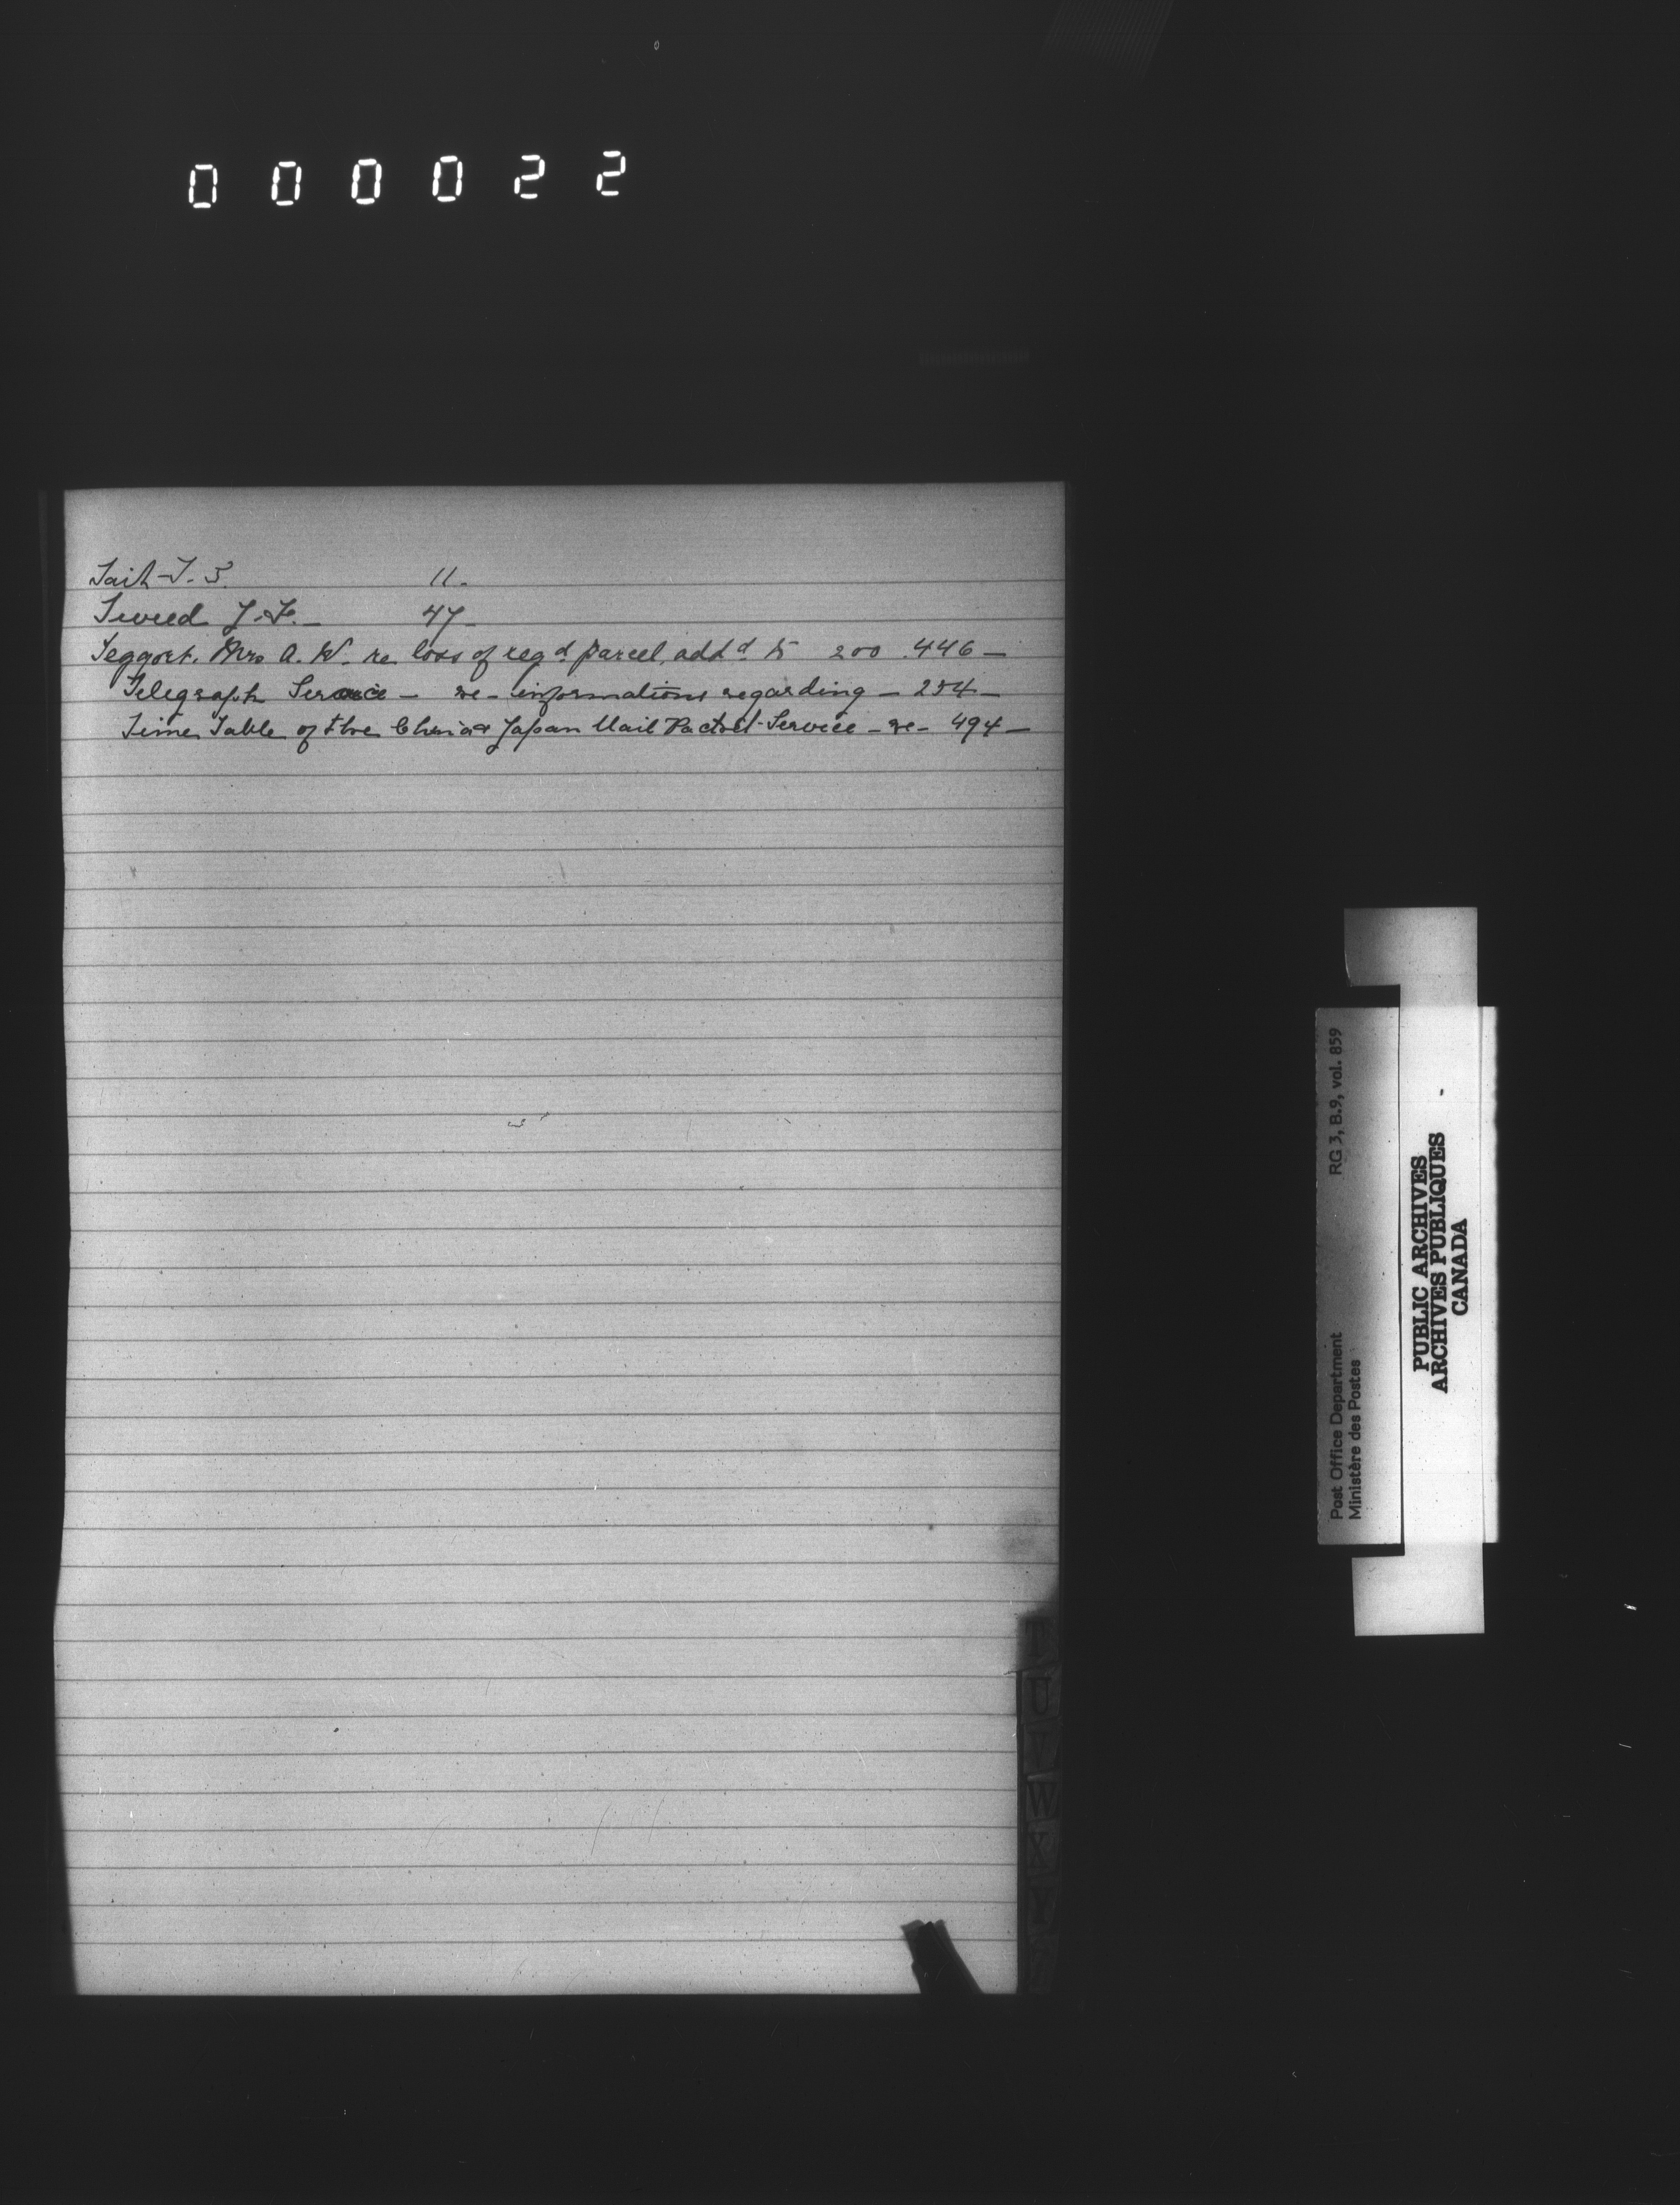 000022
Tait J. T. 11.
Tweed J. F. - 47 -
Teggart. Mrs A. W. re loss of regd parcel, addd to 200. 446 -
Telegraph Service - re - informations regarding - 254 -
Time Table of the China & Japan Mail Packet Service - re - 494 -
T
U
V
W
X
Y
Post Office Department RG 3, B.9, vol. 859
Ministère des Postes
PUBLIC ARCHIVES
ARCHIVES PUBLIQUES
CANADA